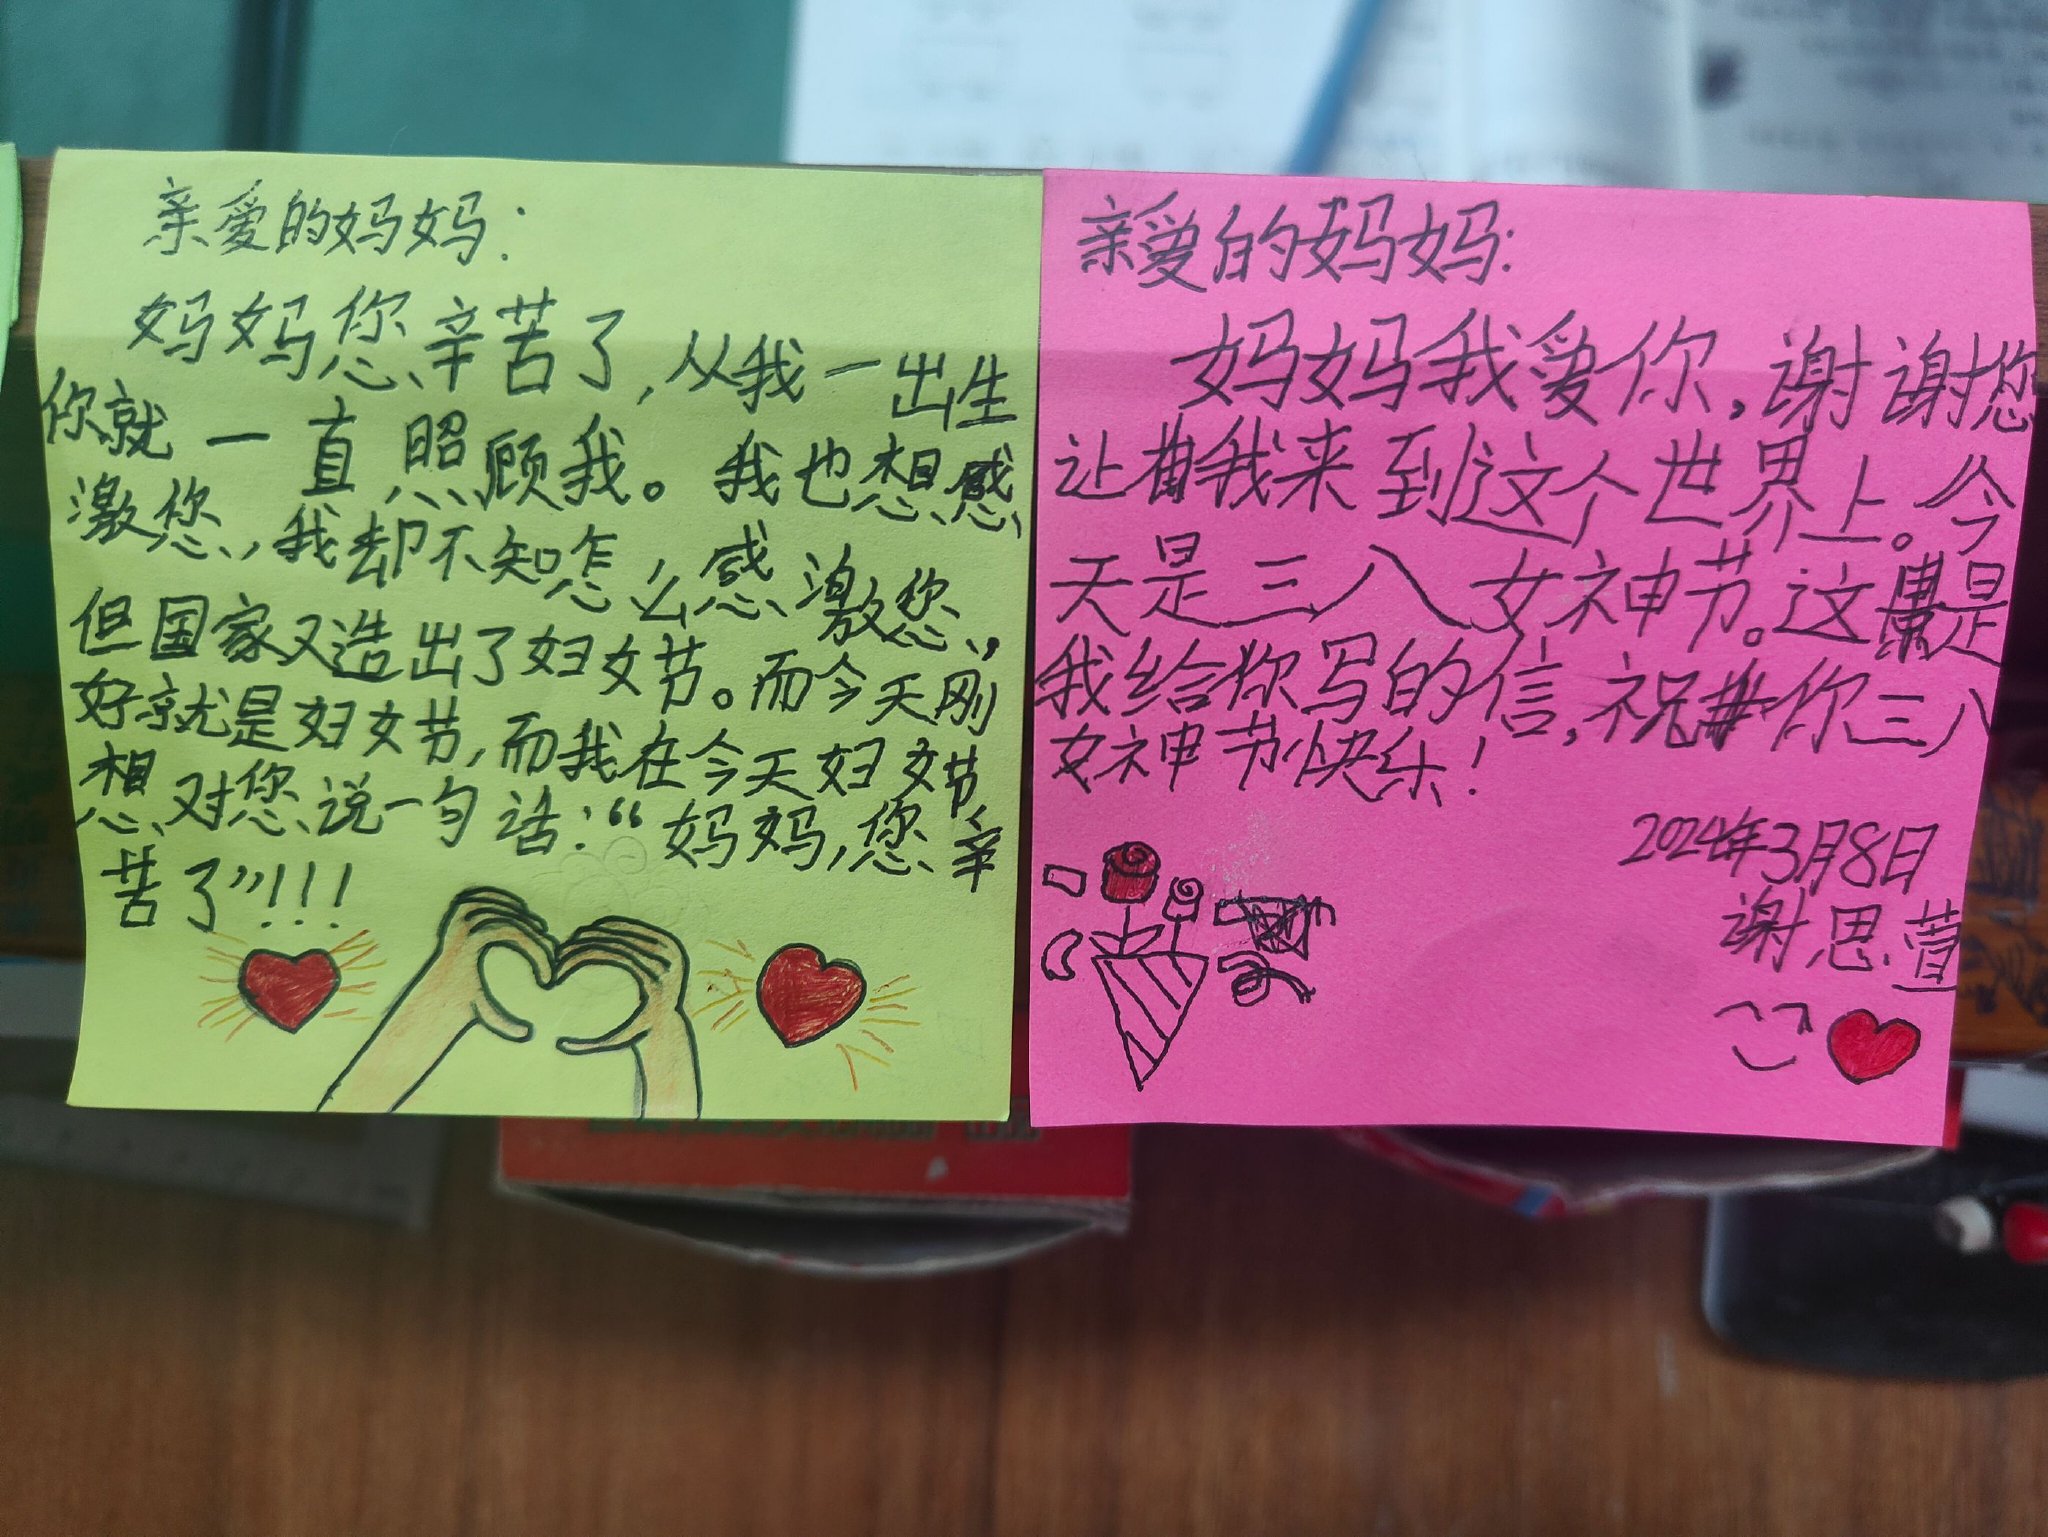 亲爱的妈妈：
妈妈您辛苦了，从我一出生
你就一直照顾我。我也想感
激您，我却不知怎么感激您，
但国家又造出了妇女节。而今天刚
好就是妇女节，而我在今天妇女节
想对您说一句话：“妈妈，您辛
苦了”！！！
亲爱的妈妈：
妈妈我爱你，谢谢您
让我来到这个世界上。今
天是三八女神节。这是
我给你写的信，祝你三八
女神节快乐！
2024年3月8日
谢思萱